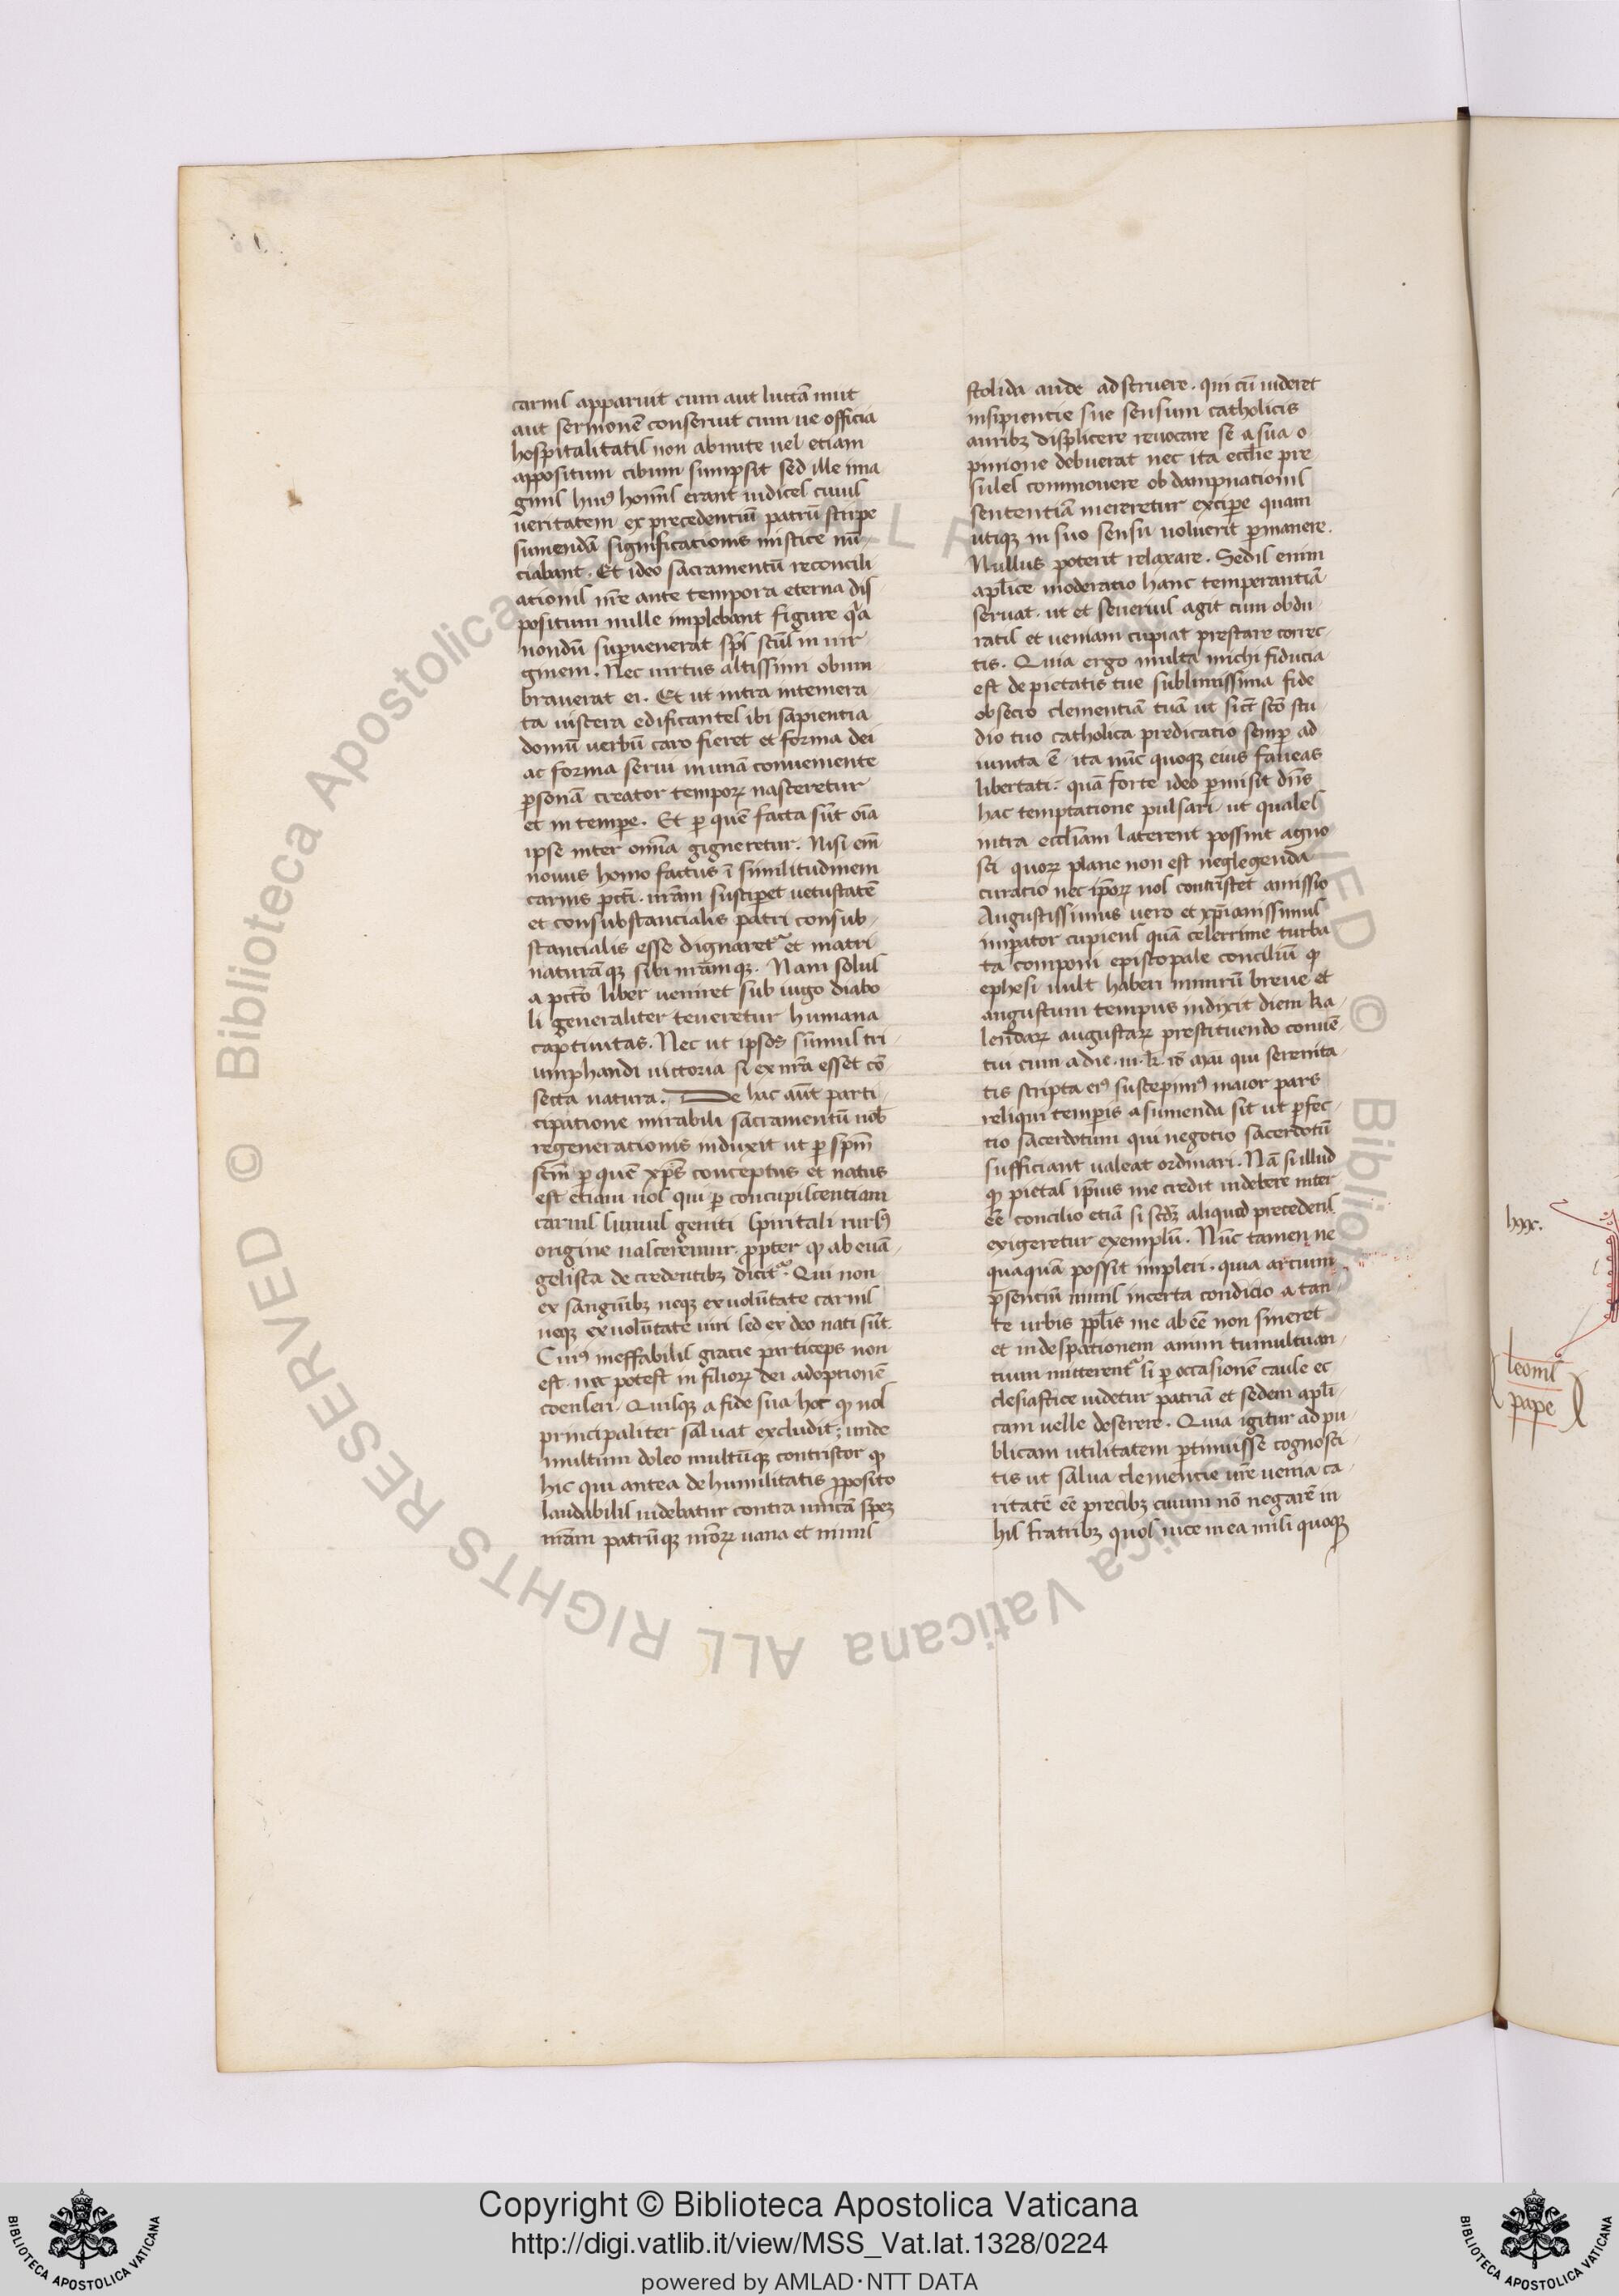 carnis apparuit cum aut luctã iniit
aut sermonẽ conseruit cum ue officia
hospitalitatis non abnuite uel etiam
appositum cibum sumpsit sed ille ima
gines huiꝰ hoĩs erant iudices cuius
ueritatem ex precedentiũ patrũ stirpe
sumendã significationis mistice nũ-
ciabant. Et ideo sacramentũ reconcili
ationis nr̃e ante tempora eterna dis
positum nulle implebant figure qͥa
nondũ supuenerat sp̃s sc̃us in uir-
ginem. Nec uirtus altissimi obum-
brauerat ei. Et ut intra intemera-
ta uiscera edificantes ibi sapientia
domũ uerbũ caro fieret et forma dei
ac forma serui in unã conueniente
ꝑsonã creator temporꝝ nasceretur
et in tempe. Et ꝑ quẽ facta sũt oĩa
ipse inter omĩa gigneretur. Nisi em̃
nouus homo factus ĩ similitudinem
carnis pcc̃i. nr̃am susciperet uetustatẽ
et consubstancialis patri consub-
stancialis esse dignaretᷣ et matri
naturãqꝫ sibi nr̃amqꝫ. Nam solus
a pcc̃o liber ueniret sub iugo diabo
li generaliter teneretur humana
captiuitas. Nec ut ipsos simul tri-
umphandi uictoria si ex nr̃a esset cõ
secta natura. De hac aũt parti-
cipatione mirabili sacramentũ nob̃
regenerationis induxit ut ꝑ sp̃m
sc̃m ꝑ quẽ xp̃s conceptus et natus
est etiam nos qui ꝑ concupiscentiam
carnis sumus geniti spiritali rursꝰ
origine nasceremur. ꝓpter qꝫ ab euã-
gelista de credentibꝫ dicitᷣ. Qui non
ex sanguĩbꝫ neqꝫ ex uolũtate carnis
neqꝫ ex uolũtate uiri sed ex deo nati sũt.
Cuiꝰ ineffabilis gracie particeps non
est. nec potest in filiorꝝ dei adoptionẽ
coenseri. Quisqꝫ a fide sua hoc qꝫ nos
principaliter saluat excludit; unde
multum doleo multũqꝫ contristor qꝫ
hic qui antea de humilitatis ꝓposito
laudabilis uidebatur contra unicã spez
nr̃am patrũqꝫ nr̃orꝝ uana et nimis
stolida aude adstruere. qui cũ uideret
insipientie sue sensum catholicis
auribꝫ displicere reuocare se a sua o
pinione debuerat nec ita eccl̃ie pre-
sules commouere ob dampnationis
sententiã mereretur excipe quam
utiqꝫ in suo sensu uoluerit ꝑmanere.
Nullus poterit relaxare. Sedis enim
apl̃ice moderatio hanc temperantiã
seruat. ut et seuerius agit cum obdu-
ratis et ueniam cupiat prestare correc-
tis. Quia ergo multa michi fiducia
est de pietatis tue sublimissima fide
obsecro clementiã tuã ut sicͭ sc̃o stu-
dio tuo catholica predicatio semꝑ ad
iuncta ẽ. ita nũc quoqꝫ eius faueas
libertati. quã forte ideo ꝑmisit dñs
hac temptatione pulsari. ut quales
intra eccl̃iam laterent possint agno
sci quorꝝ plane non est neglegenda
curatio nec ip̃orꝝ nos contristet amissio
Augustissimus uero et xp̃ianissimus
imperator cupiens quã celerrime turba
ta componi episcopale conciliũ qꝫ
ephesi uult haberi nimirũ breue et
angustum tempus indixit diem ka-
lendarꝝ augustarꝝ prestituendo conuẽ-
tui cum a die. iii. k̃. qui serenita-
tis scripta eiꝰ suscepimꝰ maior pars
reliqui temꝑis asumenda sit ut ꝑfec-
tio sacerdotum qui negotio sacerdotũ
sufficiant ualeat ordinari. Nã si illud
qꝫ pietas ip̃ius me credit indebere inter
eẽ concilio etiã si sc̃dꝫ aliquod precedens
exigeretur exemplũ. Nũc tamen ne
quaquã possit impleri. quia
p̃sentiũ nimis incerta condicio a tan-
te urbis ppl̃is me abeẽ non sineret
et in despationem animi tumultuan-
tium mitterentᷣ si ꝑ occasionẽ cause ec
clesiastice uidetur patriã et sedem apl̃i-
cam uelle deserere. Quia igitur ad pu-
blicam utilitatem ꝑtinuisse cognosci-
tis ut salua clemencie ur̃e uenia ca-
ritatẽ eẽ precibꝫ ciuium nõ negarẽ in
his fratribꝫ quos uice mea misi quoqꝫ
lxx.
leonis
pape
Copyright © Biblioteca Apostolica Vaticana
http://digi.vatlib.it/view/MSS_Vat.lat.1328/0224
powered by AMLAD·NTT DATA
BIBLIOTECA APOSTOLICA VATICANA
BIBLIOTECA APOSTOLICA VATICANA
© Biblioteca Apostolica Vaticana ALL RIGHTS RESERVED